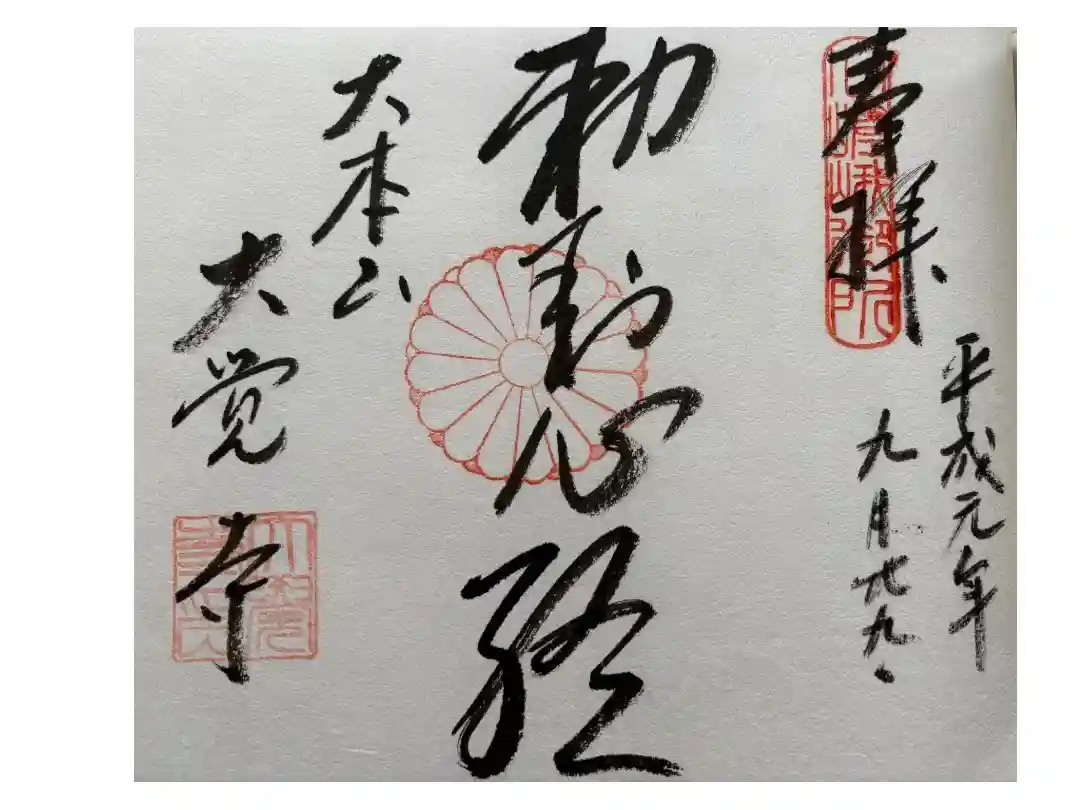 奉拝
平成元年
九月廿九、
勅封心経
大本山
大覚寺